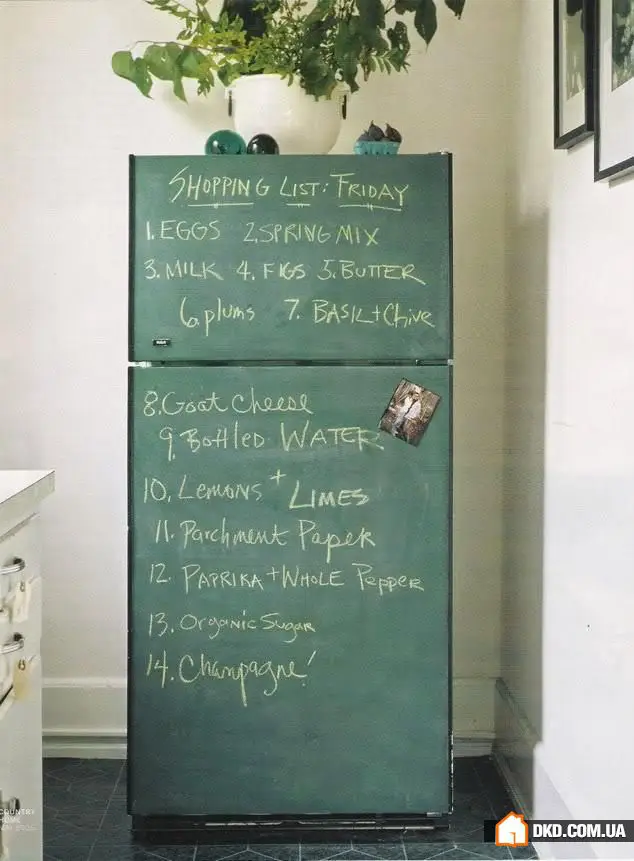 Shopping List: Friday
1. EGGS 2. SPRING MIX
3. MILK 4. FIGS 5. BUTTER
6. plums 7. BASIL + Chive
8. Goat cheese
9. Bottled WATER
10. Lemons + LIMES
11. Parchment Paper
12. PAPRIKA + WHOLE Pepper
13. Organic Sugar
14. Champagne!
COUNTRY
HOME
DKD.COM.UA